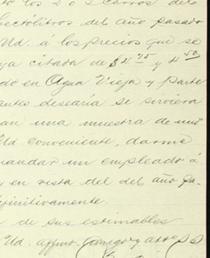 to los 2 o 3 carros del
hectólitros del año pasado
Ud. á los precios que se
ya citada de $2 25 y 4 50
do en Agua Vieja y parte
antes desearía se sirviera
an una muestra de mi
Ud conveniente, darme
mandar un empleado á
y en vista del del año pa-
finitivamente.
de sus estimables
Ud. affmo. amigo y atto s s